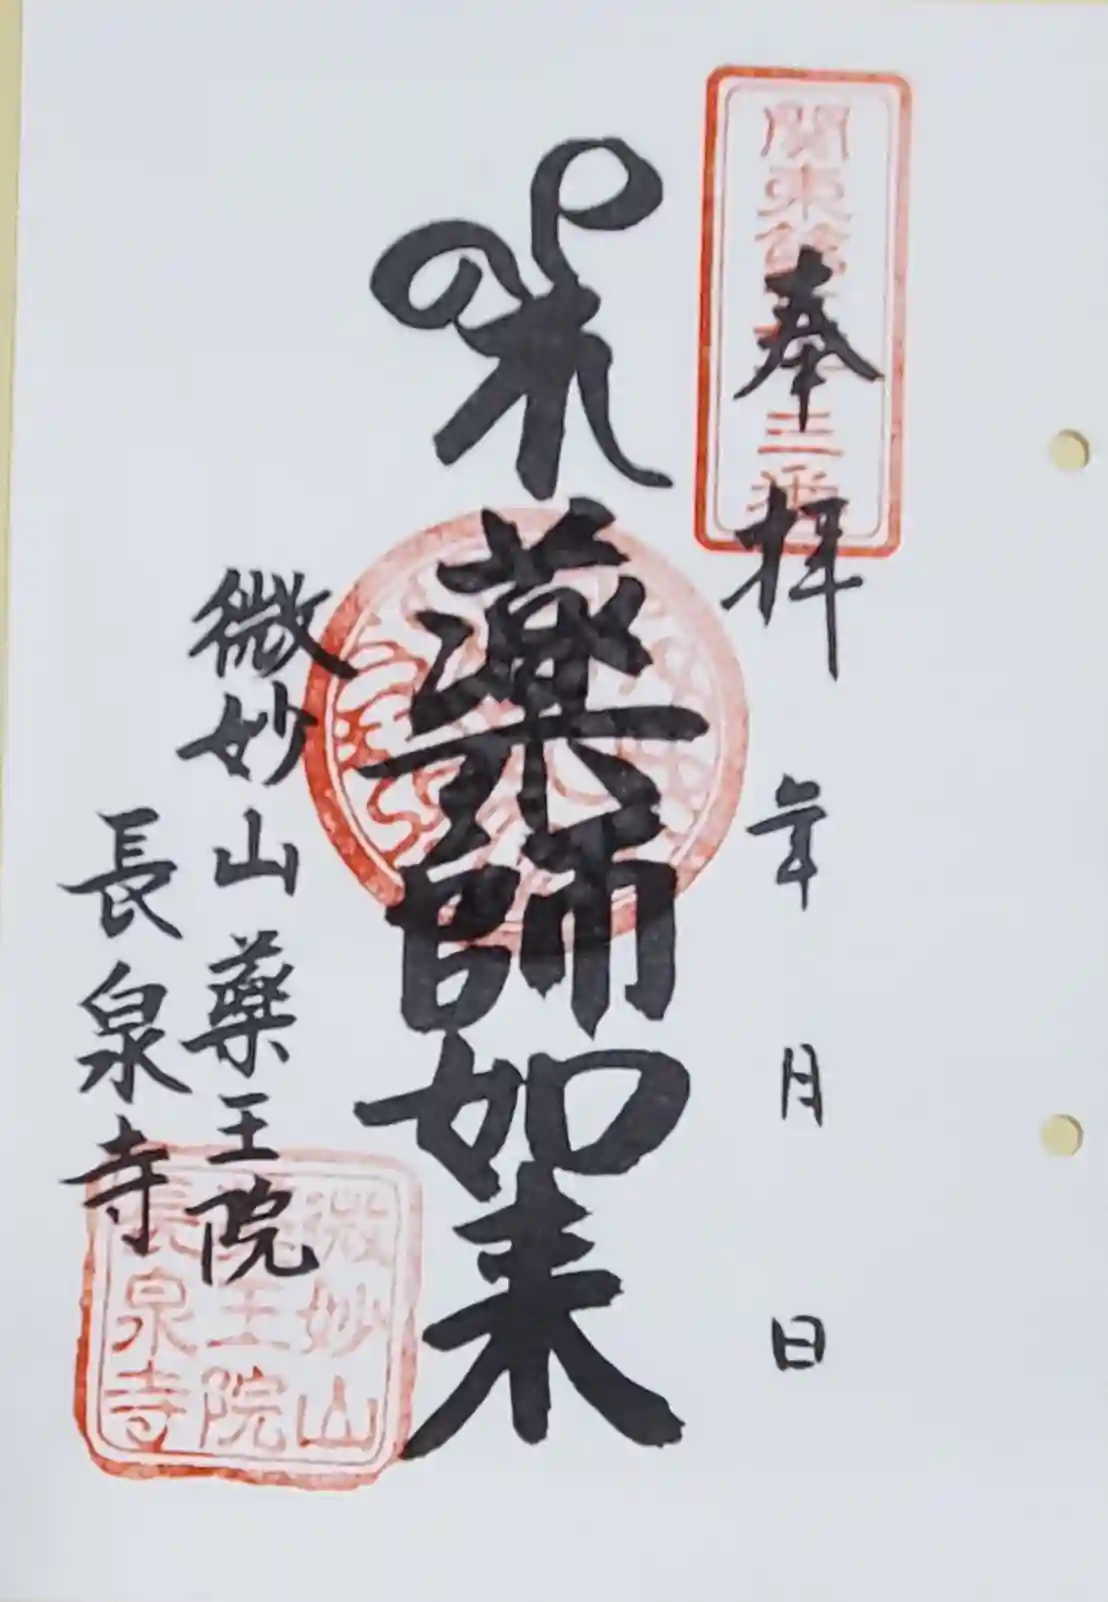 奉拝
年 月 日
薬師如来
微妙山薬王院
長泉寺
関東
三
微妙山
薬王院
長泉寺